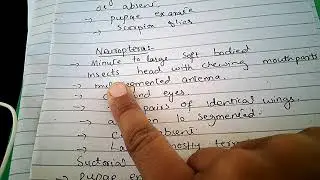 or absent.
→ pupae exarate
→ Scorpion flies
Neuroptera:
→ Minute to large soft bodied
insects head with chewing mouthparts
→ segmented antenna.
→ eyes.
→ pairs of identical wings.
→ 10 segmented.
→ absent.
→ mostly
Suctorial
→ pupae